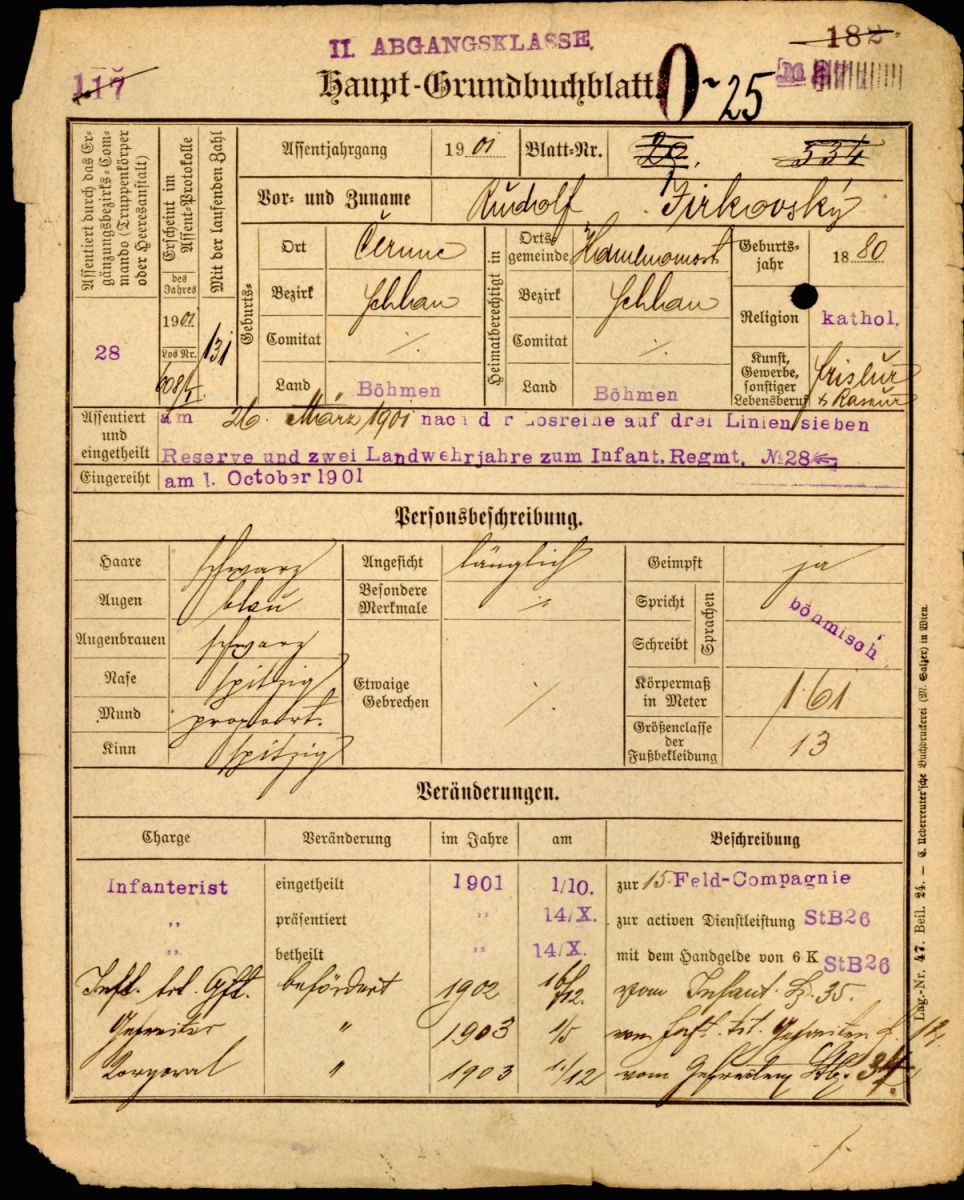 II. ABGANGSKLASSE.
182
117
Haupt-Grundbuchblatt.
25
Assentiert durch das Er-
gänzungsbezirks-Com-
mando (Truppenkörper
oder Heeresanstalt)
28
Erscheint im
Assent-Protokolle
des
Jahres
1901
Los Nr.
Mit der laufenden Zahl
131
Assentjahrgang
1901
Blatt-Nr.
534
Vor- und Zuname
Rudolf Jirkovský
Geburts-
Ort
Bezirk
Comitat
Land
Böhmen
Heimatberechtigt in
Orts-
gemeinde
Bezirk
Comitat
Land
Böhmen
Geburts-
jahr
1880
Religion
kathol.
Kunst,
Gewerbe,
sonstiger
Lebensberuf
Assentiert
und
eingetheilt
am 26. März 1901 nach der Losreihe auf drei Linien sieben
Reserve und zwei Landwehrjahre zum Infant. Regmt. №28
Eingereiht
am 1. October 1901
Personsbeschreibung.
Haare schwarz
Augen blau
Augenbrauen schwarz
Nase spitzig
Mund proport.
Kinn spitzig
Angesicht länglich
Besondere
Merkmale
Etwaige
Gebrechen
Geimpft ja
Spricht
Schreibt
Sprachen
böhmisch
Körpermaß
in Meter
1·61
Größenclasse
der
Fußbekleidung
13
Veränderungen.
Charge Veränderung im Jahre am Beschreibung
Infanterist eingetheilt 1901 1/10. zur 15. Feld-Compagnie
„ präsentiert „ 14/X. zur activen Dienstleistung StB26
„ betheilt „ 14/X. mit dem Handgelde von 6 K StB26
Inft. tit. Gft. befördert 1902 16/12. vom Infant. 35.
Gefreiter „ 1903 1/5 vom Inft. tit. Gefreiten
Corporal „ 1903 1/12 vom Gefreiten 34.
Lag.-Nr. 47. Beil. 24. — C. Ueberreuter'sche Buchdruckerei (M. Salzer) in Wien.